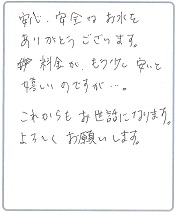 安心、安全なお水を
ありがとうございます。
料金が、もう少し安いと
嬉しいのですが…。
これからもお世話になります。
よろしくお願いします。